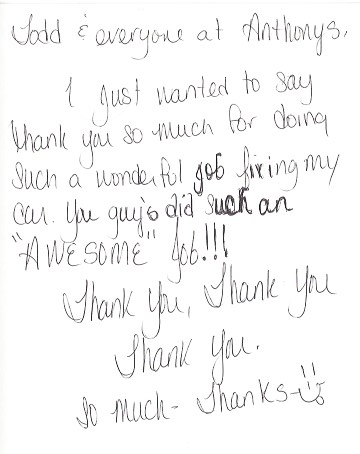 Todd & everyone at Anthonys,
I Just wanted to say
thank you so much for doing
such a wonderful job fixing my
car. You guy's did such an
"AWESOME" Job!!!
Thank You, Thank You
Thank You.
So much - Thanks-